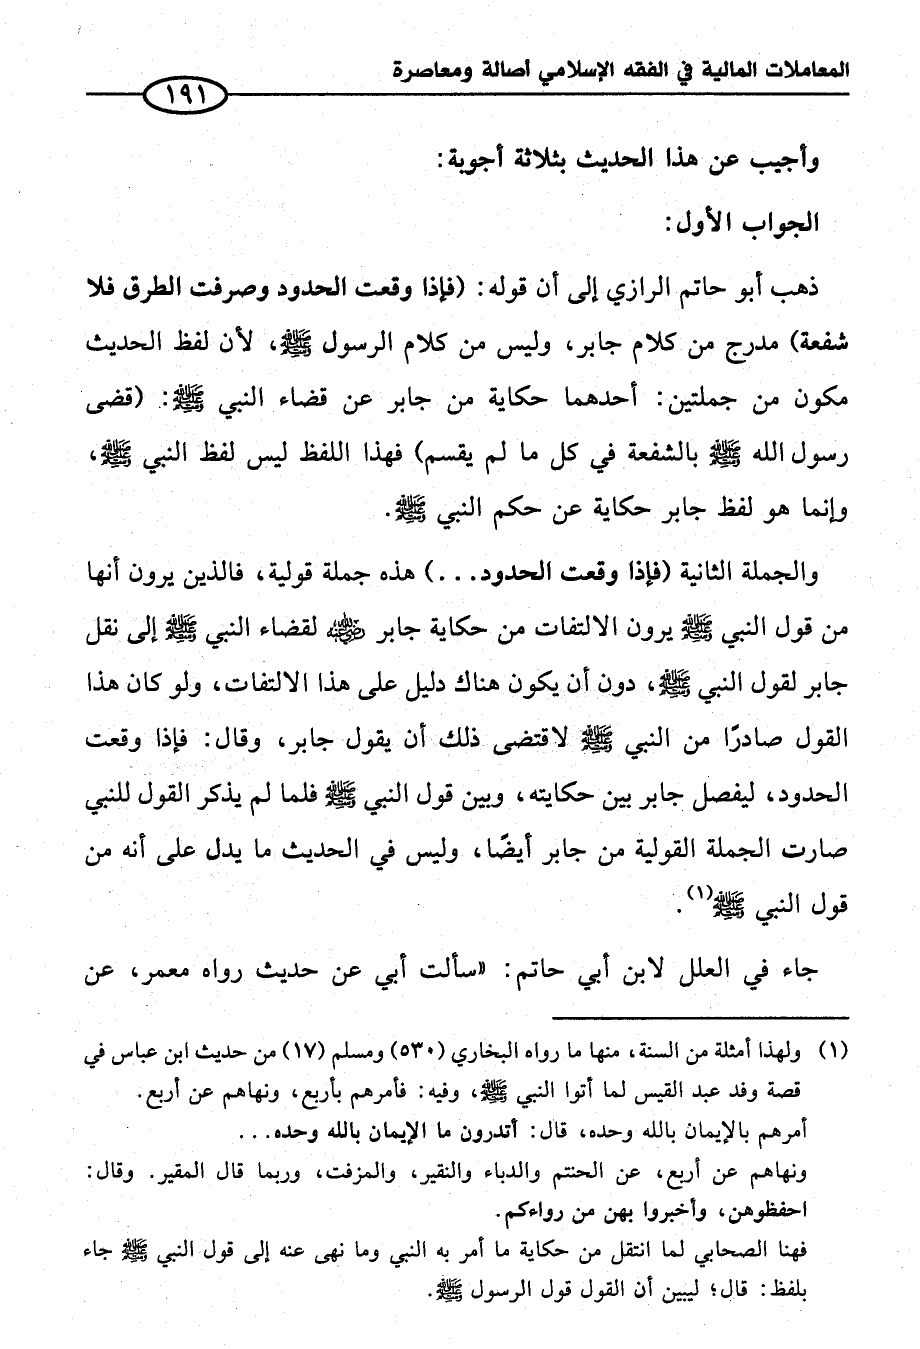 المعاملات المالية في الفقه الإسلامي أصالة ومعاصرة
١٩١
وأجيب عن هذا الحديث بثلاثة أجوبة:
الجواب الأول:
ذهب أبو حاتم الرازي إلى أن قوله: (فإذا وقعت الحدود وصرفت الطرق فلا
شفعة) مدرج من كلام جابر، وليس من كلام الرسول ﷺ، لأن لفظ الحديث
مكون من جملتين: أحدهما حكاية من جابر عن قضاء النبي ﷺ: (قضى
رسول الله ﷺ بالشفعة في كل ما لم يقسم) فهذا اللفظ ليس لفظ النبي ﷺ،
وإنما هو لفظ جابر حكاية عن حكم النبي ﷺ.
والجملة الثانية (فإذا وقعت الحدود...) هذه جملة قولية، فالذين يرون أنها
من قول النبي ﷺ يرون الالتفات من حكاية جابر رضي الله عنه لقضاء النبي ﷺ إلى نقل
جابر لقول النبي ﷺ، دون أن يكون هناك دليل على هذا الالتفات، ولو كان هذا
القول صادرًا من النبي ﷺ لاقتضى ذلك أن يقول جابر، وقال: فإذا وقعت
الحدود، ليفصل جابر بين حكايته، وبين قول النبي ﷺ فلما لم يذكر القول للنبي
صارت الجملة القولية من جابر أيضًا، وليس في الحديث ما يدل على أنه من
قول النبي ﷺ(١).
جاء في العلل لابن أبي حاتم: «سألت أبي عن حديث رواه معمر، عن
(١) ولهذا أمثلة من السنة، منها ما رواه البخاري (٥٣٠) ومسلم (١٧) من حديث ابن عباس في
قصة وفد عبد القيس لما أتوا النبي ﷺ، وفيه: فأمرهم بأربع، ونهاهم عن أربع.
أمرهم بالإيمان بالله وحده، قال: أتدرون ما الإيمان بالله وحده...
ونهاهم عن أربع، عن الحنتم والدباء والنقير، والمزفت، وربما قال المقير. وقال:
احفظوهن، وأخبروا بهن من رواءكم.
فهنا الصحابي لما انتقل من حكاية ما أمر به النبي وما نهى عنه إلى قول النبي ﷺ جاء
بلفظ: قال؛ ليبين أن القول قول الرسول ﷺ.